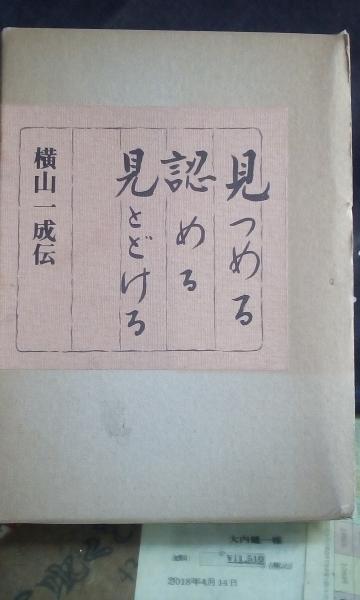 見つめる
認める
見とどける
横山一成伝
¥11,510
2018年4月14日